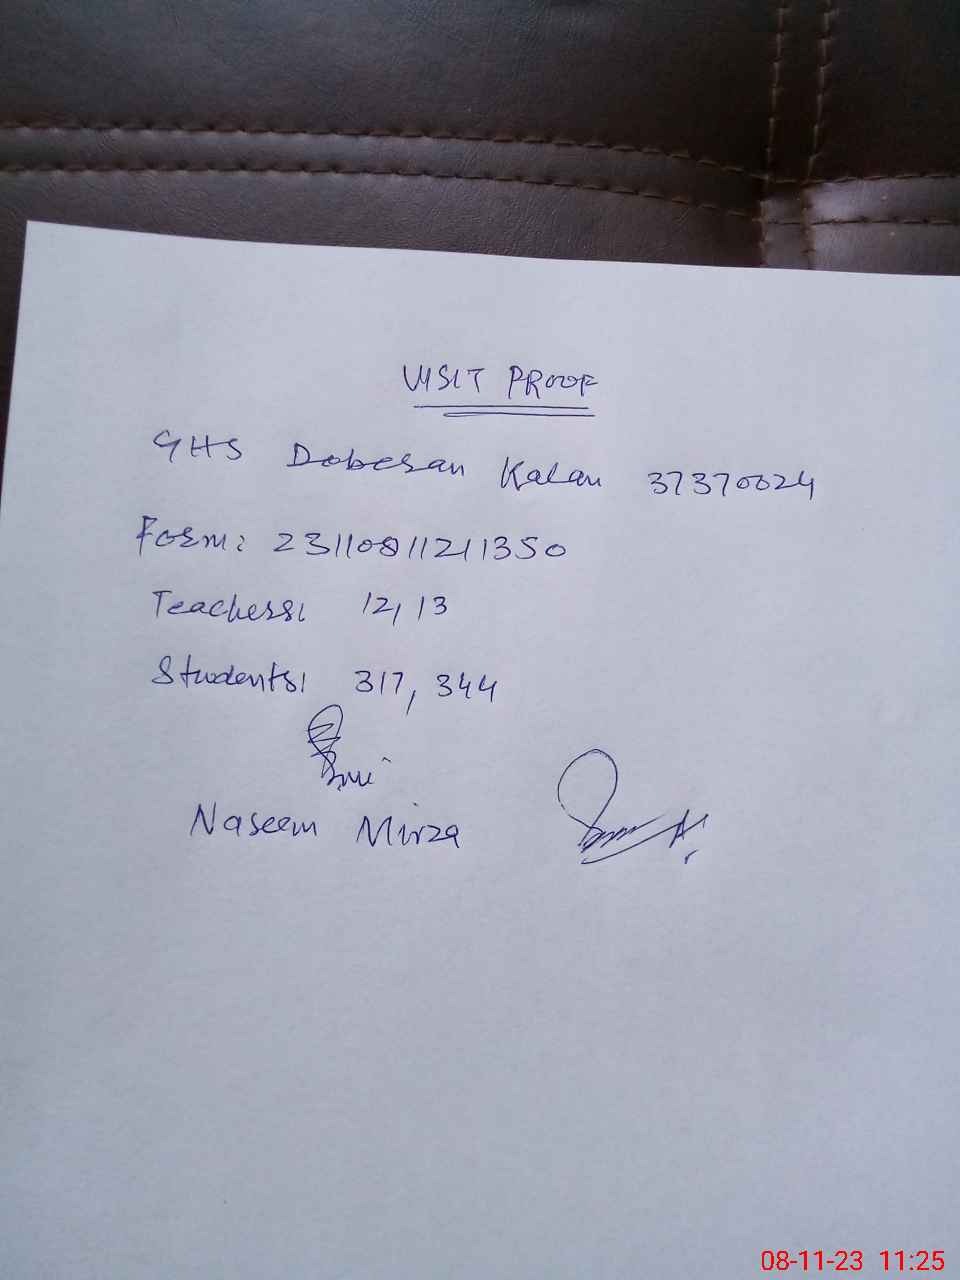 VISIT PROOF
GHS Doberan Kalan 37370024
Form: 23110811211350
Teachers: 12, 13
Students: 317, 344
Naseem Mirza
08-11-23 11:25